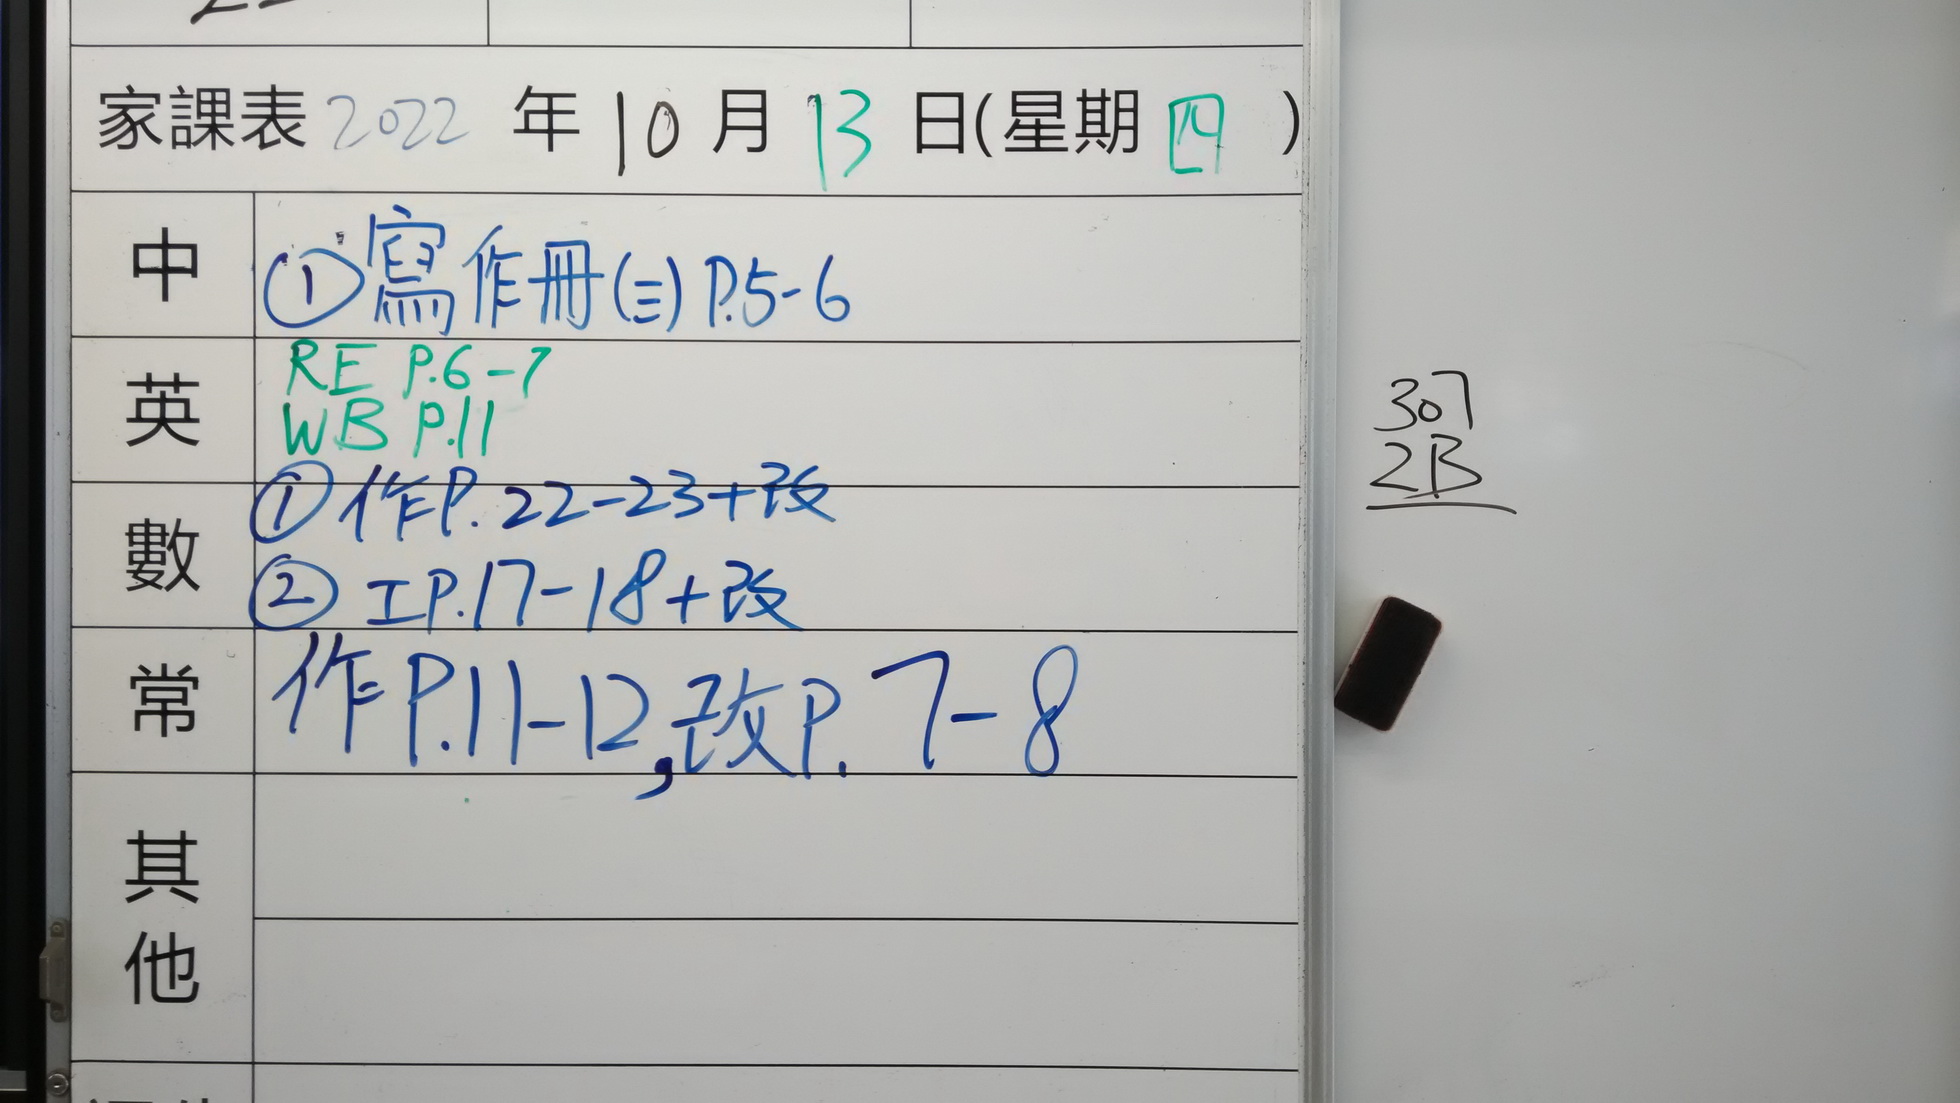 家課表 2022 年 10 月 13 日(星期 四 )
中 ①寫作冊(三) P.5-6
英 RE P.6-7
WB P.11
數 ①作P.22-23+改
②工P.17-18+改
常 作P.11-12,改P.7-8
其他
307
2B